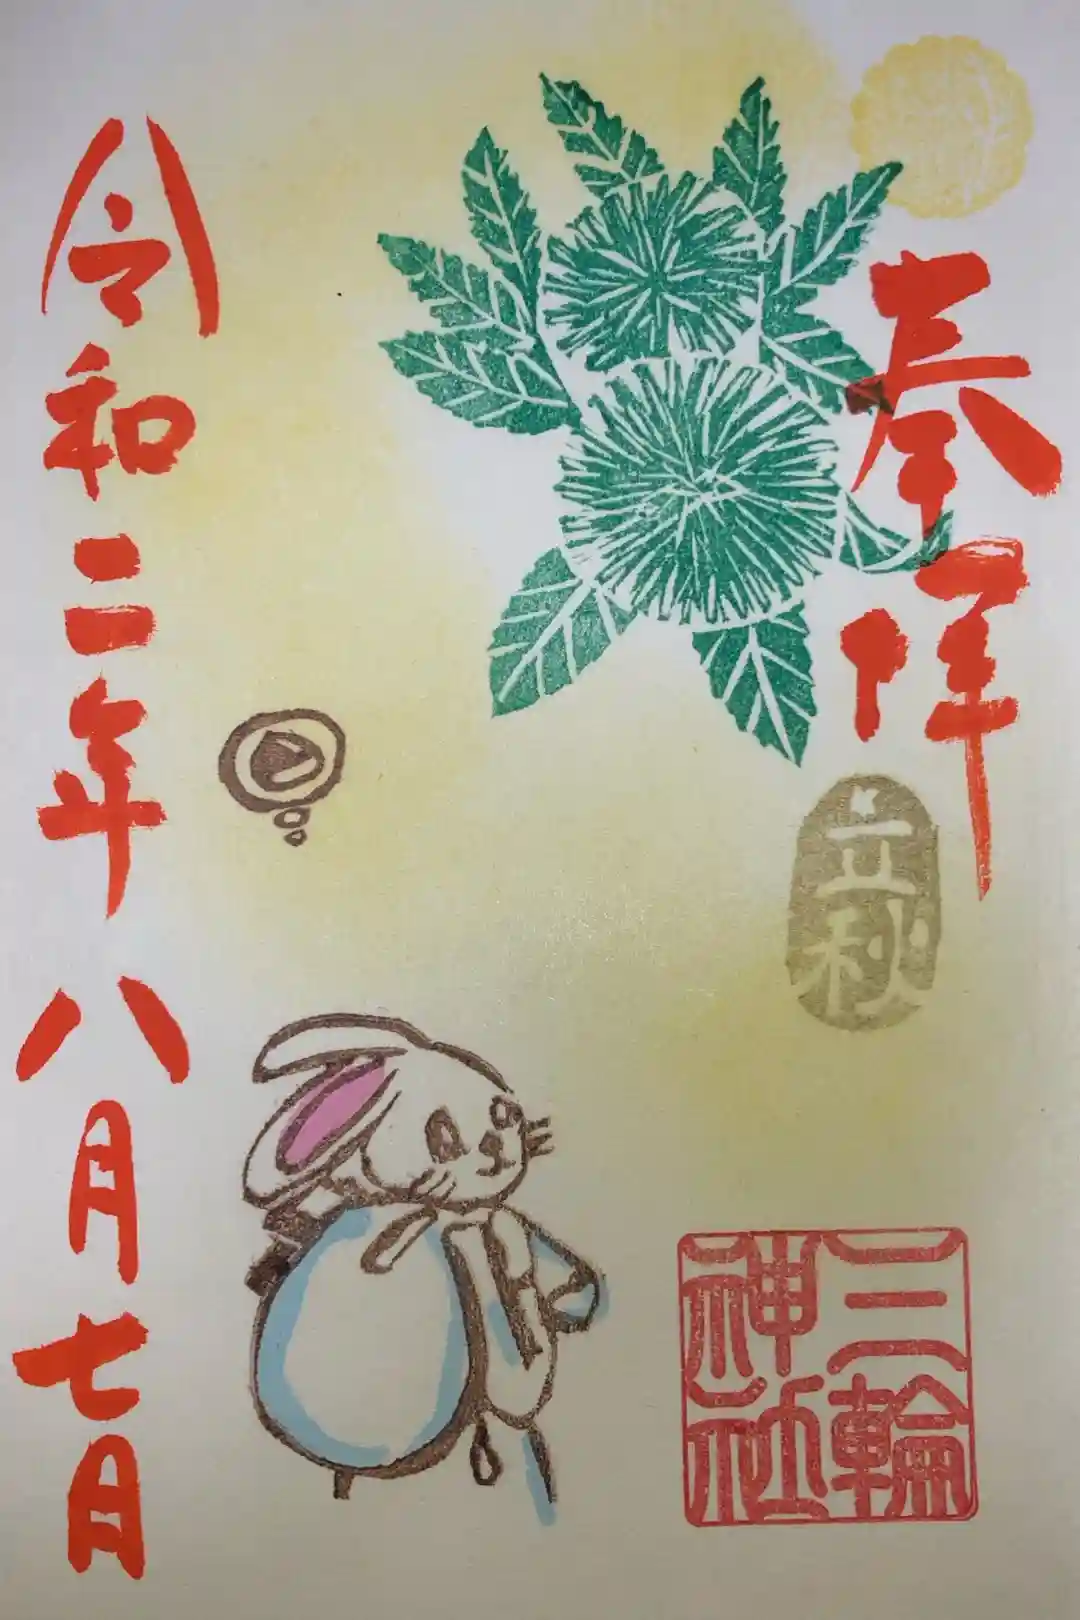 奉拝
立秋
三輪
神社
令和二年八月七日